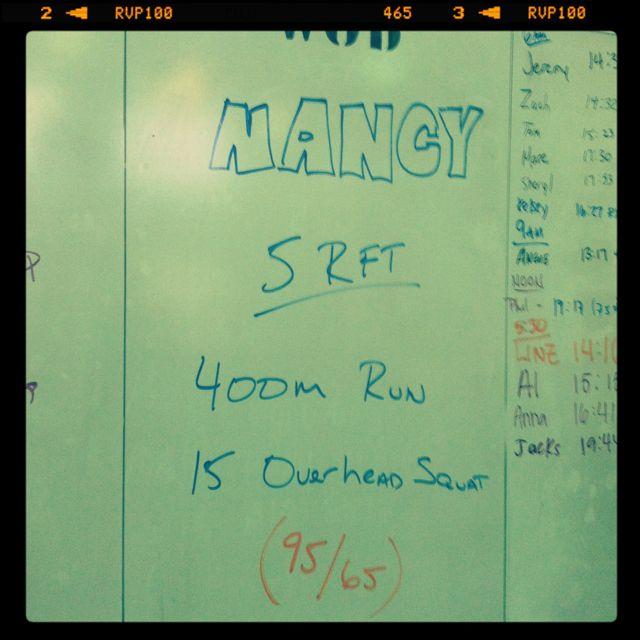 2 RVP100 465 3 RVP100
WOD
NANCY
5 RFT
400m Run
15 Overhead Squat
(95/65)
Jeremy 14:3
Zach 14:32
Tom 15:23
Marc 17:30
Sheryl 17:33
16:27
9am
Angie 13:17
NOON
Phil - 19:17 (75
5:30
14:10
Al 15:15
Anna 16:41
Jacks 19:44